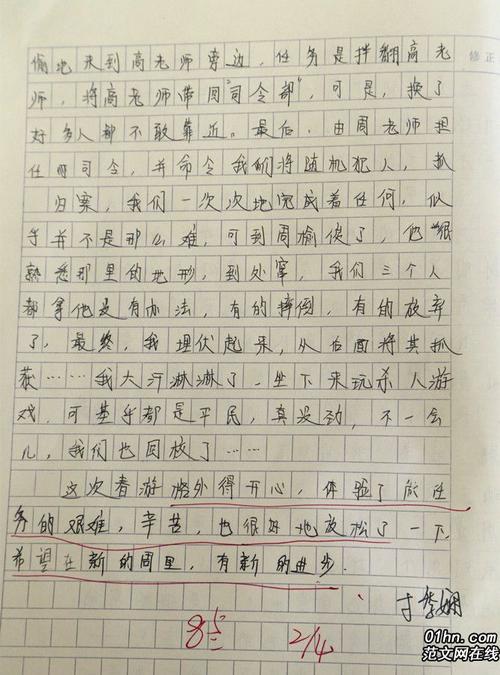 偷地来到高老师旁边，任务是拌翻高老
师，将高老师带回"司令部"，可是，换了
好多人都不敢靠近。最后，由周老师担
任司令，并命令我们将随机犯人，抓
归案，我们一次次地完成着任何，似
乎并不是那么难，可到周愉俊了，他"很
熟悉那里的地形，到处窜，我们三个人
都拿他没有办法，有的摔倒，有的放弃
了，最终，我埋伏起来，从后面将其抓
获……我大汗淋淋了，坐下来玩杀人游
戏，可基乎都是平民，真没劲，不一会
儿，我们也回校了……
这次春游格外得开心，体验了做任
务的艰难，辛苦，也很好地放松了一下，
希望在新的周里，有新的进步.
85
2/4
01hn.com
范文网在线
修正